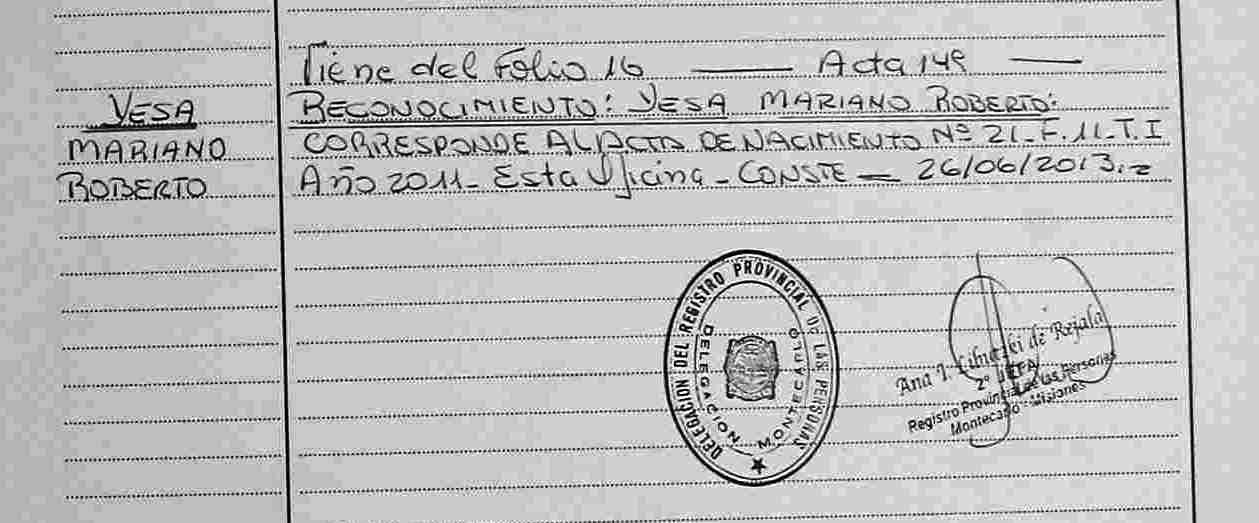 Viene del Folio 16 —— Acta 149 ——
VESA
MARIANO
ROBERTO
RECONOCIMIENTO: VESA MARIANO ROBERTO:
CORRESPONDE AL ACTA DE NACIMIENTO Nº 21-F.11-T.I
Año 2011- Esta Oficina - CONSTE — 26/06/2013.=
DELEGACION DEL REGISTRO PROVINCIAL DE LAS PERSONAS
DELEGACION MONTECARLO
Ana I. de Rejala
2º JEFA
Registro Provincial de las Personas
Montecarlo - Misiones